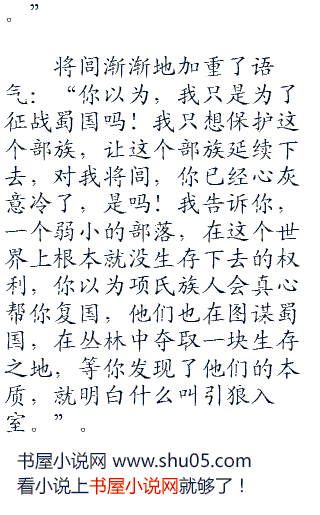 。”
将闾渐渐地加重了语
气：“你以为，我只是为了
征战蜀国吗！我只想保护这
个部族，让这个部族延续下
去，对我将闾，你已经心灰
意冷了，是吗！我告诉你，
一个弱小的部落，在这个世
界上根本就没生存下去的权
利，你以为项氏族人会真心
帮你复国，他们也在图谋蜀
国，在丛林中夺取一块生存
之地，等你发现了他们的本
质，就明白什么叫引狼入
室。”。
书屋小说网 www.shu05.com
看小说上书屋小说网就够了！